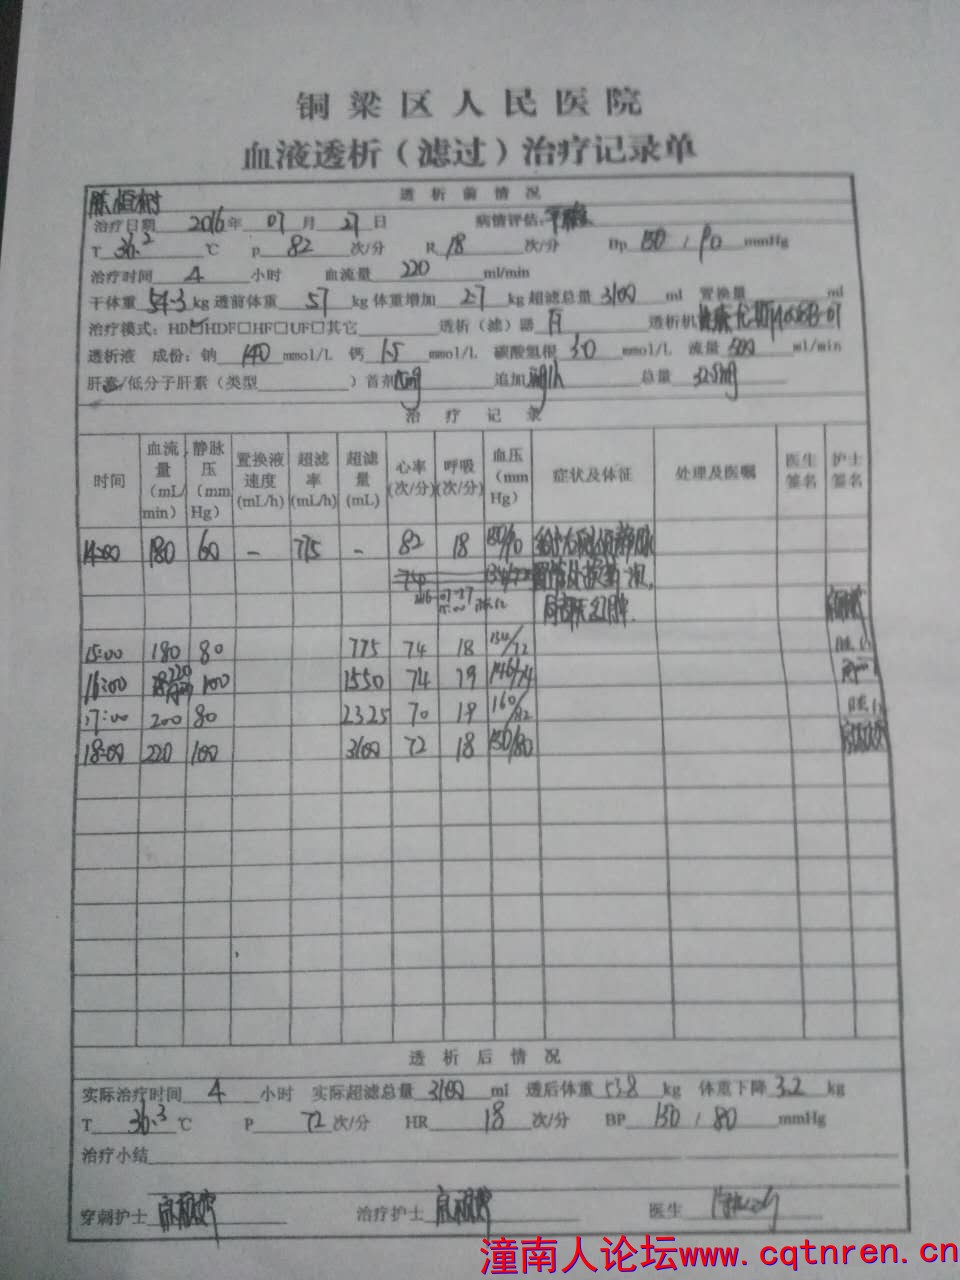 铜梁区人民医院
血液透析（滤过）治疗记录单
陈恒树 透析前情况
治疗日期 2016年 07月 27日 病情评估:平稳
T 36.2 ℃ P 82 次/分 R 18 次/分 Bp 150 / 90 mmHg
治疗时间 4 小时 血流量 220 ml/min
干体重 54.3 kg 透前体重 57 kg 体重增加 2.7 kg 超滤总量 3100 ml 置换量 ml
治疗模式: HD☑HDF□HF□UF□其它 透析（滤）器 透析机
透析液 成份: 钠 140 mmol/L 钙 1.5 mmol/L 碳酸氢根 30 mmol/L 流量 500 ml/min
肝素/低分子肝素（类型 ）首剂 追加 总量
治疗记录
时间 血流量（mL/min） 静脉压（mmHg） 置换液速度(mL/h) 超滤率(mL/H) 超滤量(mL) 心率(次/分) 呼吸(次/分) 血压（mmHg） 症状及体征 处理及医嘱 医生签名 护士签名
14:00 180 60 - 775 - 82 18 150/90
74 134/72 置管处换药一次,
2016-07-27
15:00 180 80 775 74 18 134/72
16:00 220 100 1550 74 19 146/74
17:00 200 80 2325 70 19 160/82
18:00 220 100 3100 72 18 150/80
透析后情况
实际治疗时间 4 小时 实际超滤总量 3100 ml 透后体重 53.8 kg 体重下降 3.2 kg
T 36.3 ℃ P 72 次/分 HR 18 次/分 BP 150 / 80 mmHg
治疗小结
穿刺护士 治疗护士 医生
潼南人论坛www.cqtnren.cn